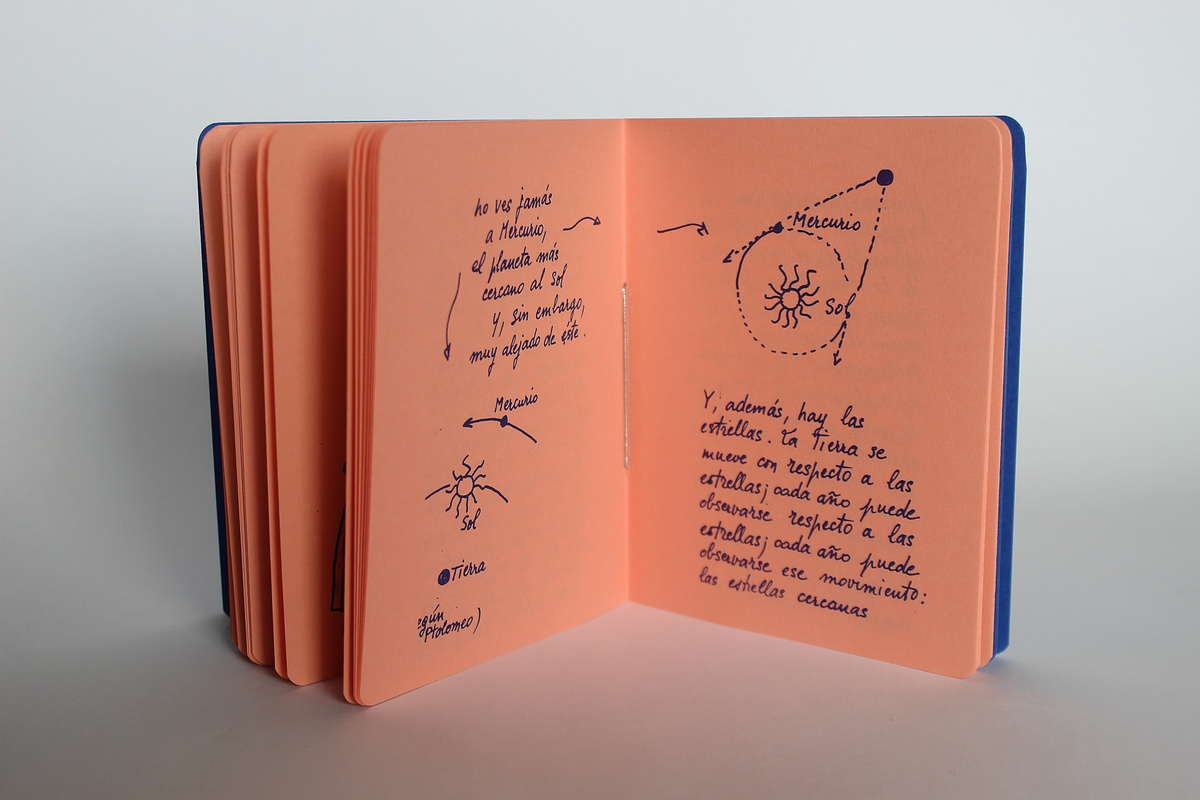 no ves jamás
a Mercurio,
el planeta más
cercano al Sol
Y, sin embargo,
muy alejado de éste.
Mercurio
Sol
Tierra
Ptolomeo)
Mercurio
Sol
Y, además, hay las
estrellas. La Tierra se
mueve con respecto a las
estrellas; cada año puede
observarse respecto a las
estrellas; cada año puede
observarse ese movimiento:
las estrellas cercanas